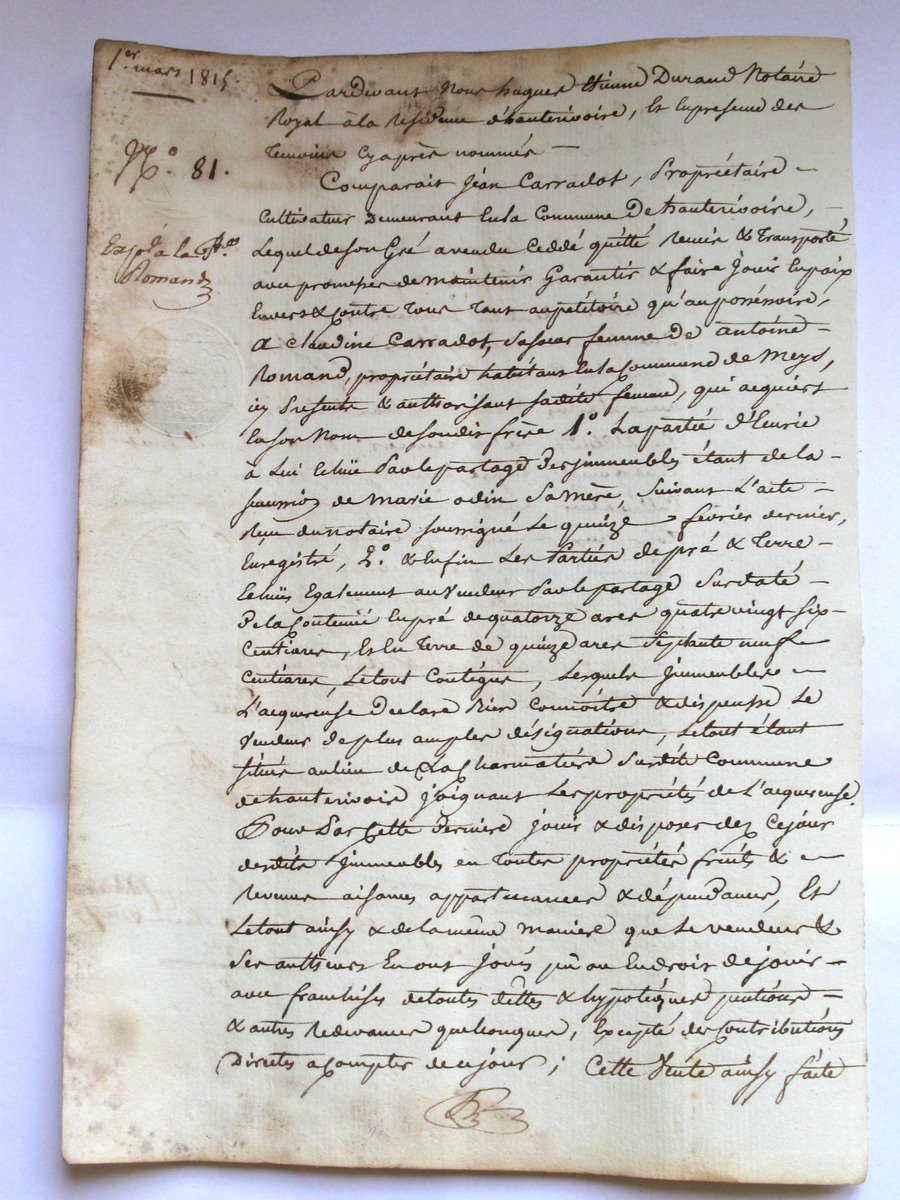 1er. mars 1815.
N.o 81.
Exp.é à la f.e
Romand
Pardevant Nous hugues Etienne Durand Notaire
Royal à la Résidence d'hauterivoire, Et En presence des
temoins Cyaprès nommés —
Comparait Jean Carradot, Propriétaire —
Cultivateur Demeurant En la Commune De hauterivoire, —
Lequel de Son Gré a vendu Ceddé quitté Remis & Transporté
avec promesse de maintenir Garantir & faire Jouir En paix
Envers & Contre Tous Tant au petitoire qu'au possessoire,
A Claudine Carradot, Sa Sœur femme De antoine —
Romand, propriétaire habitans En la Commune de Meys,
icy Présente & authorisant sadite femme, qui acquiert
En son Nom de son dit frère 1.o La partie d'Ecurie
à Lui Echüe Par le partage Des jmmeubles étant de la —
succession de Marie odin Sa Mère, Suivant L'acte —
Reçu du notaire soussigné Le quinze février dernier,
Enregistré, 2.o & Enfin Les Parties de pré & Terre —
Echües Egalement au Vendeur Par le partage Surdaté —
De la Contenüe En pré de quatorze ares quatre vingt Six —
Centiares, Et En Terre de quinze ares Septante neuf —
Centiares, Le tout Contigus, Lesquels Jmmeubles —
L'acquereuse Declare Bien Connoitre & dispense Le
Vendeur De plus amples désignations, Le tout étant
situés au lieu de La Charmatière Surdite Commune
de hauterivoire joignant Les propriétés de L'acquereuse.
Pour Par Cette derniere Jouir & disposer dez Ce jour
desdits Jmmeubles en Toutes propriétés fruits & —
Revenus aisances appartenances & dépendances, Et
Le tout ainsy & de la même Maniere que Le vendeur &
Ses autheurs En ont Jouis pû ou En droit de jouir —
avec franchises de toutes dettes & hypotèques pentions —
& autres Redevances quelconques, Excepté des Contributions
Directes a Compter de ce jour ; Cette Vente ainsy faite